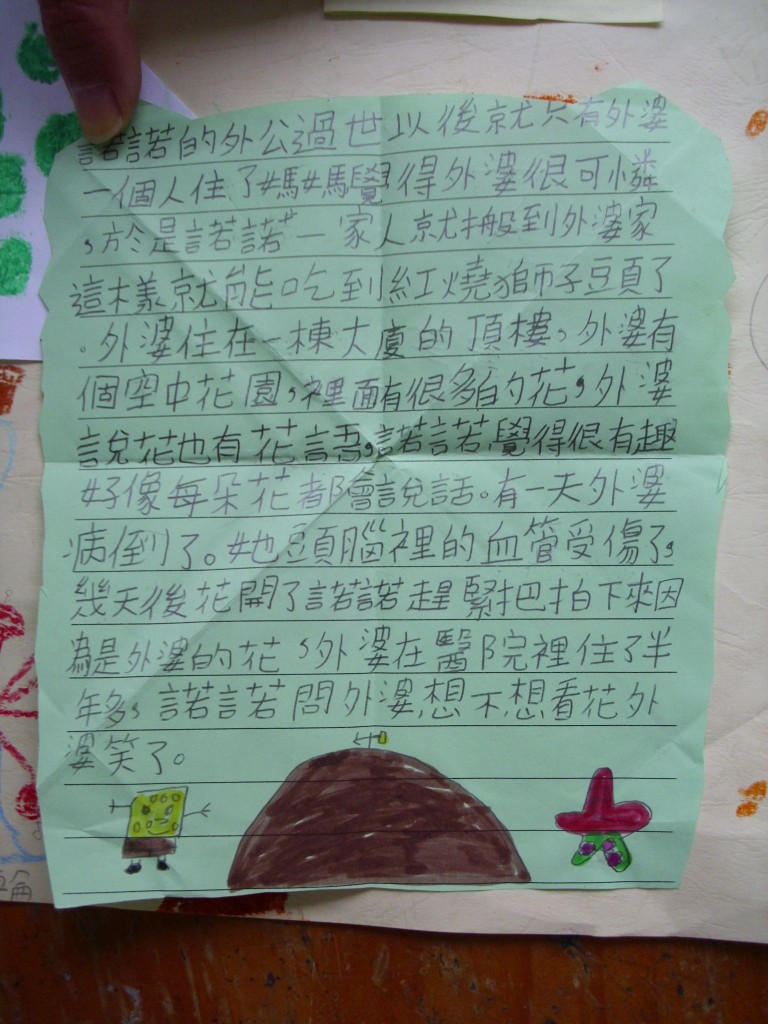 諾諾的外公過世以後就只有外婆
一個人住了媽媽覺得外婆很可憐
，於是諾諾一家人就搬到外婆家
這樣就能吃到紅燒獅子豆頁了
。外婆住在一棟大廈的頂樓，外婆有
個空中花園，裡面有很多的花，外婆
說花也有花語，諾諾覺得很有趣
好像每朵花都會說話。有一天外婆
病倒了。她頭腦裡的血管受傷了，
幾天後花開了諾諾趕緊把拍下來因
為是外婆的花，外婆在醫院裡住了半
年多，諾諾問外婆想不想看花外
婆笑了。